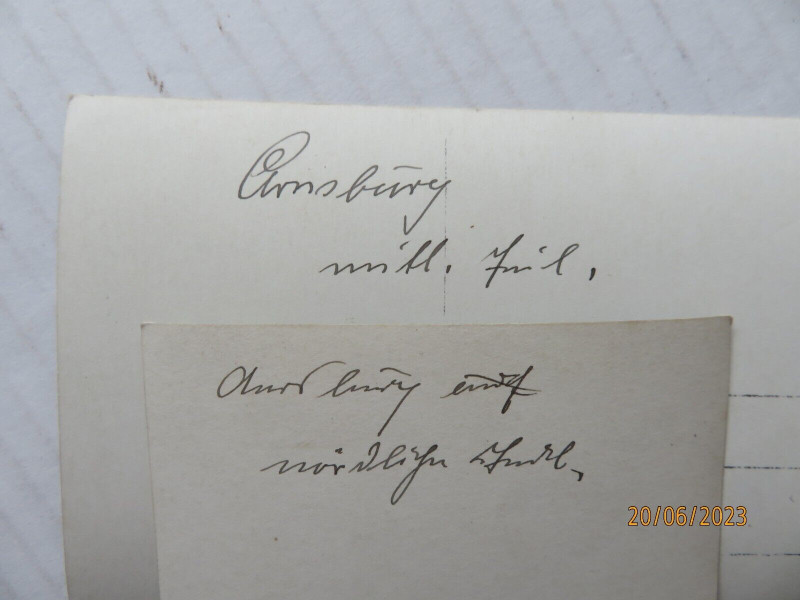 Arnsburg
mittl. Teil.
Arnsburg
nördlicher
20/06/2023